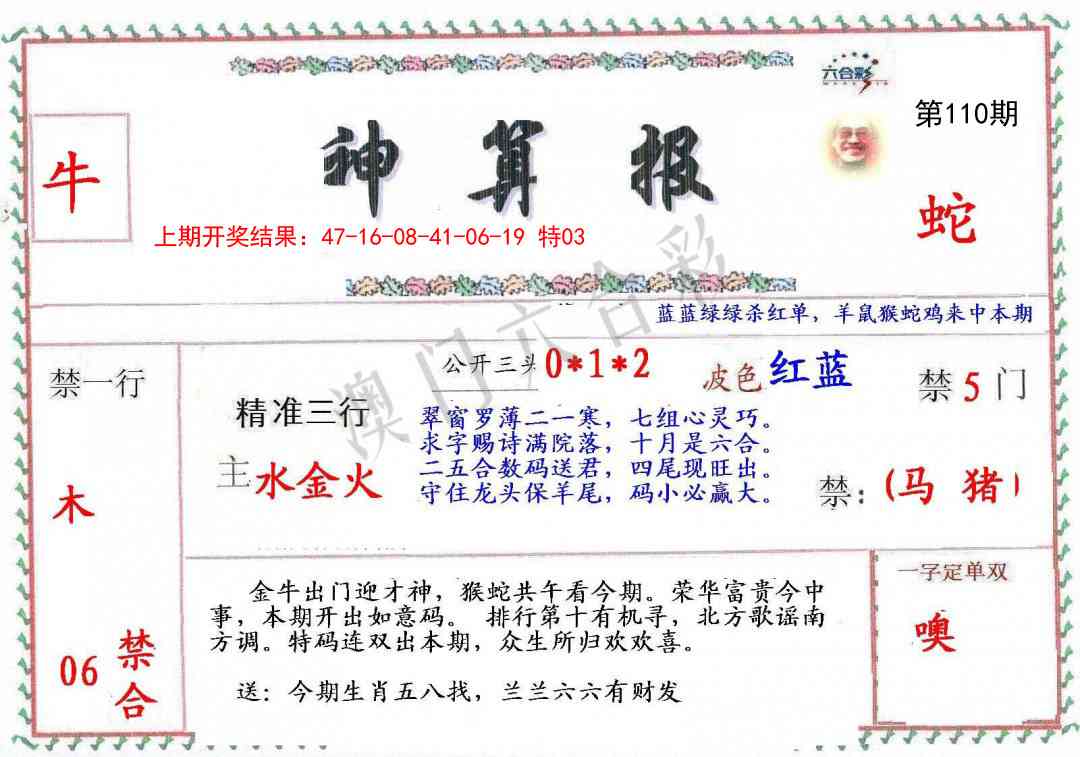 六合彩
第110期
牛
神算报
蛇
上期开奖结果：47-16-08-41-06-19 特03
蓝蓝绿绿杀红单，羊鼠猴蛇鸡来中本期
禁一行
公开三头 0*1*2
波色 红蓝
禁 5 门
精准三行
翠窗罗薄二一寒，七组心灵巧。
求字赐诗满院落，十月是六合。
主 水金火
二五合数码送君，四尾现旺出。
守住龙头保羊尾，码小必赢大。
木
禁：(马 猪)
一字定单双
金牛出门迎才神，猴蛇共午看今期。荣华富贵今中
事，本期开出如意码。 排行第十有机寻，北方歌谣南
方调。特码连双出本期，众生所归欢欢喜。
噢
06 禁合
送：今期生肖五八找，兰兰六六有财发
澳门六合彩